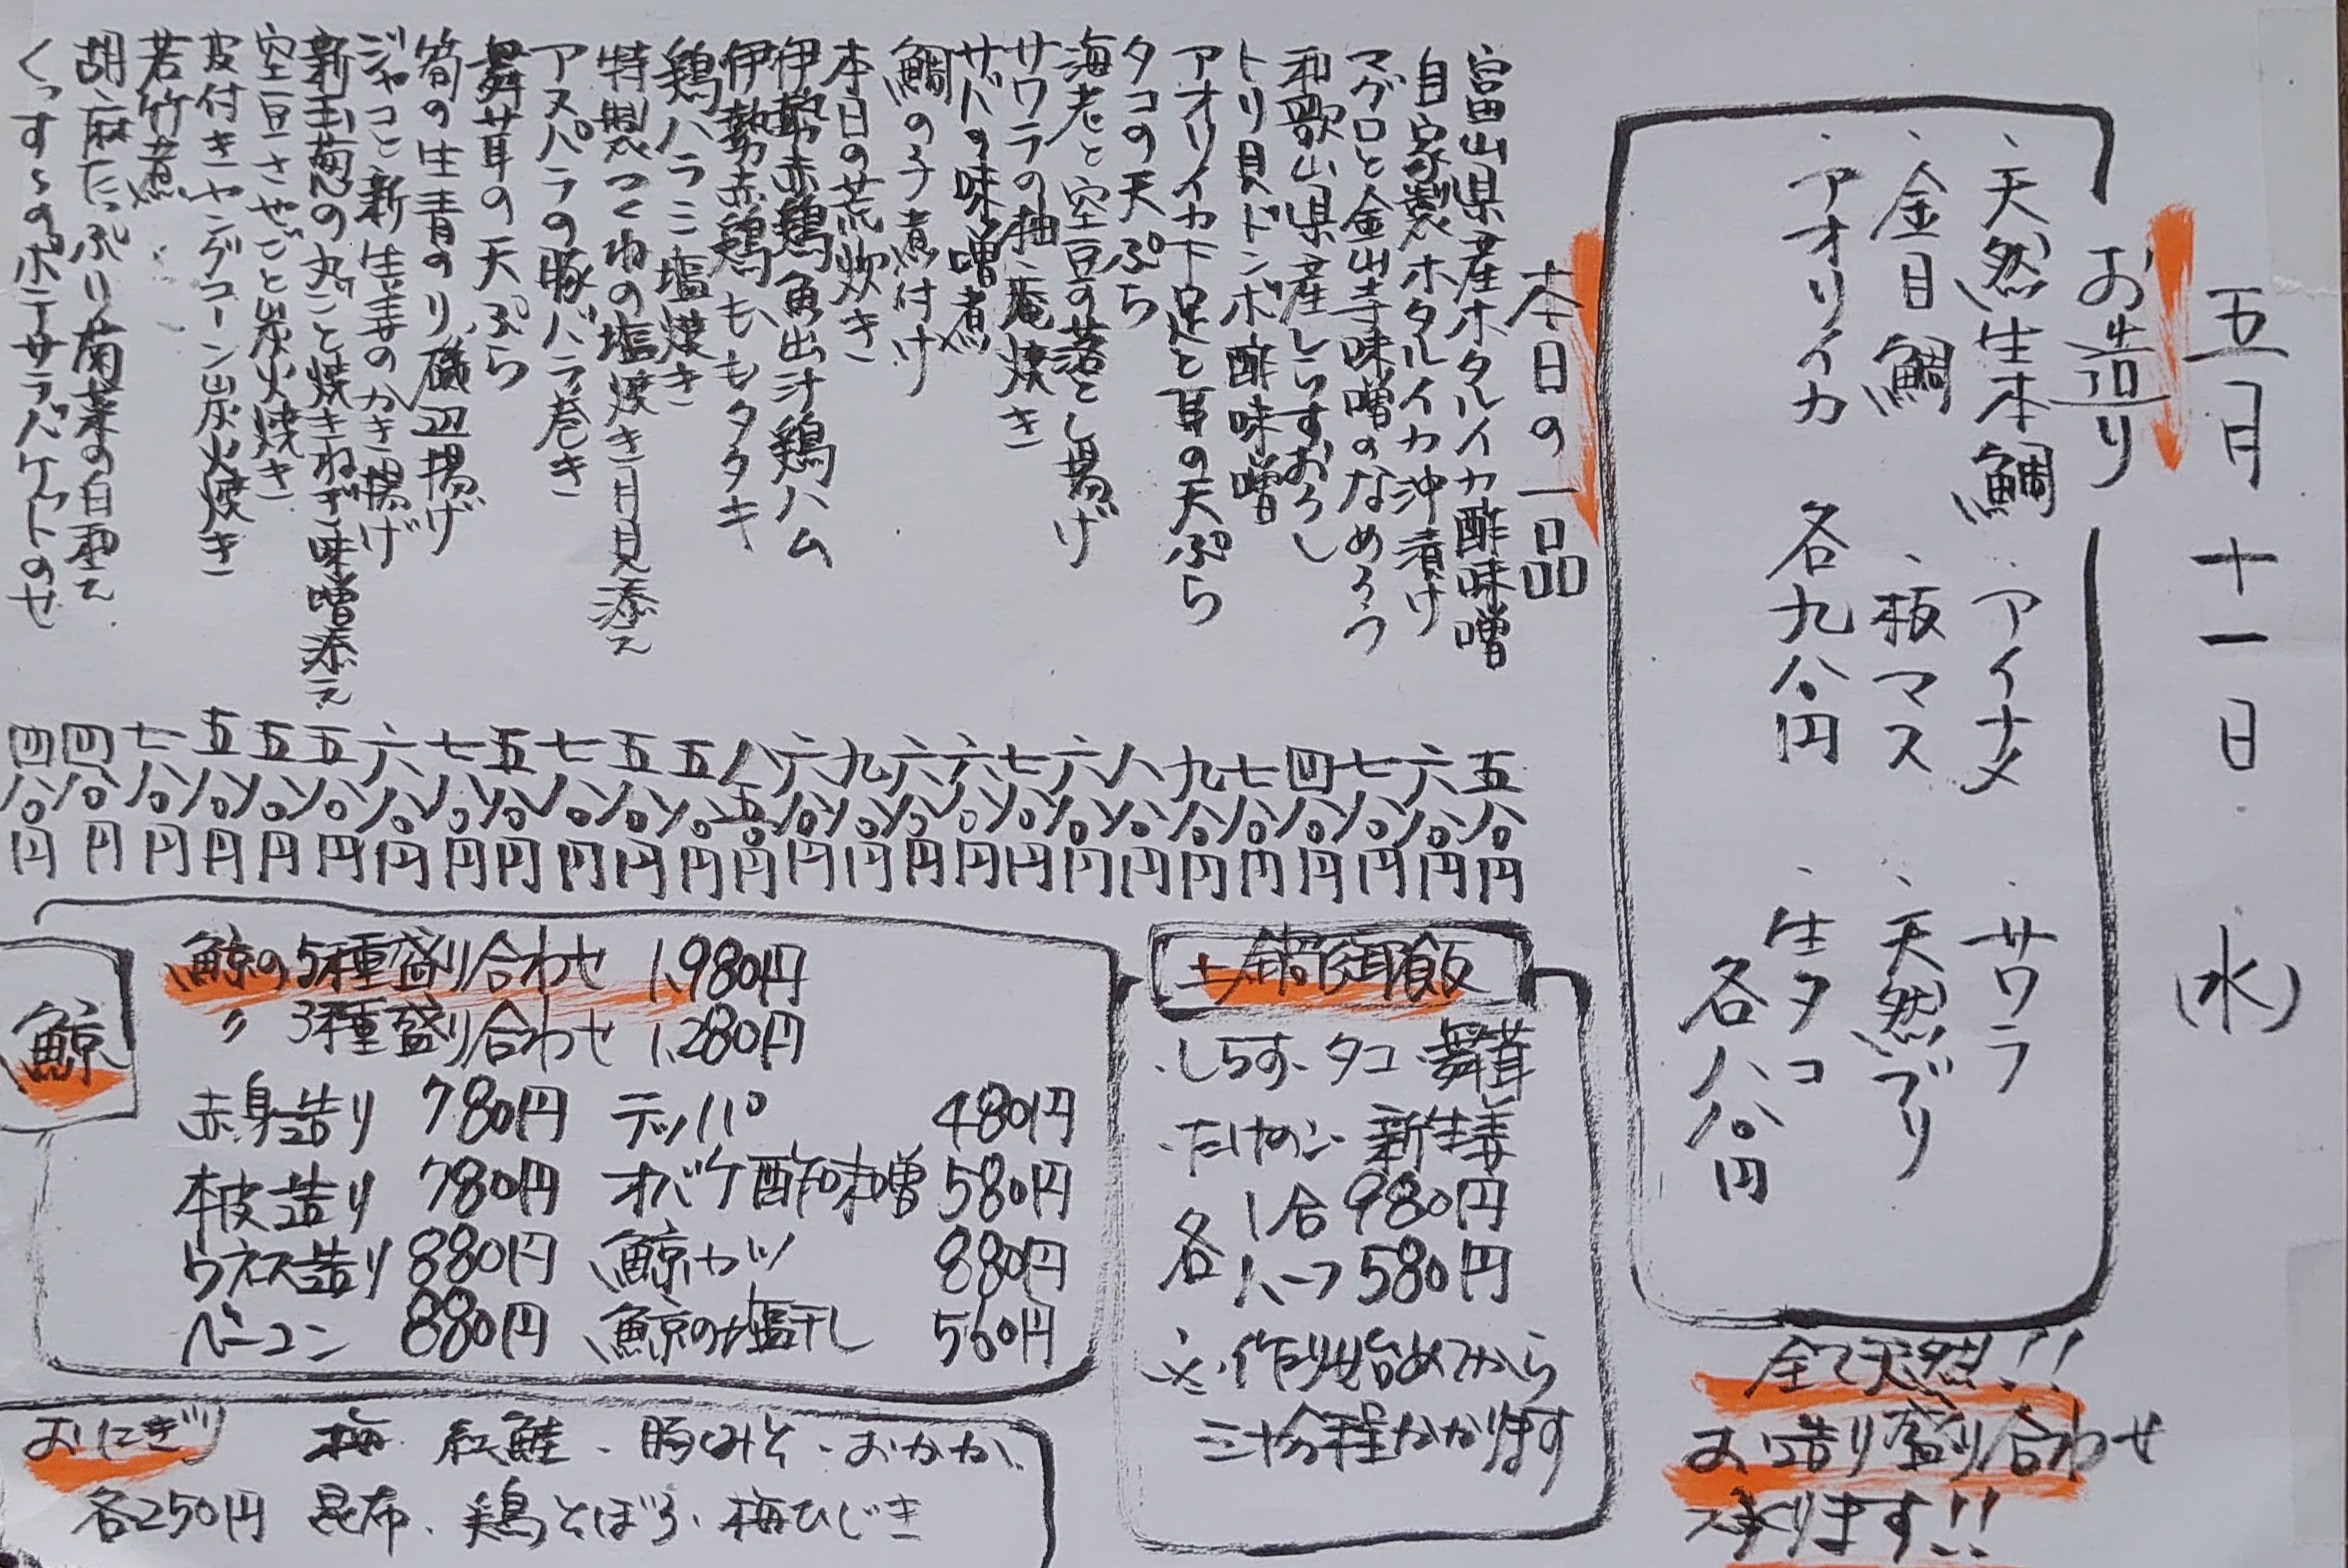 五月十一日(水)
お造り
・天然生本鯛 ・アイナメ ・サワラ
・金目鯛 ・板マス ・天然ブリ
・アオリイカ 各九八〇円 ・生タコ 各八八〇円
全て天然!!
お造り盛り合わせ
承ります!!
本日の一品
富山県産ホタルイカ酢味噌 五八〇円
自家製ホタルイカ沖漬け 六八〇円
マグロと金山寺味噌のなめろう 七八〇円
和歌山県産しらすおろし 四八〇円
トリ貝ドンボ酢味噌 七八〇円
アオリイカ下足と耳の天ぷら 九八〇円
タコの天ぷら 八八〇円
海老と空豆の落とし揚げ 六八〇円
サワラの柚庵焼き 七八〇円
サバの味噌煮 六八〇円
鯛の子煮付け 六八〇円
本日の荒炊き 九八〇円
伊勢赤鶏魚出汁鶏ハム 六八〇円
伊勢赤鶏ももタタキ 八五〇円
鶏ハラミ塩焼き 五八〇円
特製つくねの塩焼き月見添え 五八〇円
アスパラの豚バラ巻き 七八〇円
舞茸の天ぷら 五八〇円
筍の生青のり磯辺揚げ 七八〇円
ジャコと新生姜のかき揚げ 六八〇円
新玉葱の丸ごと焼きねぎ味噌添え 五八〇円
空豆さやごと炭火焼き 五八〇円
皮付きヤングコーン炭火焼き 五八〇円
若竹煮 七八〇円
胡麻たっぷり菊菜の白和え 四八〇円
くっすㇲのポテサラバケットのせ 四八〇円
土鍋御飯
・しらす・タコ・舞茸
・たけのこ・新生姜
各1合 980円
各ハーフ 580円
※作り始めてから
三十分程かかります
鯨
鯨の5種盛り合わせ 1,980円
〃 3種盛り合わせ 1,280円
赤身造り 780円 テッパ 480円
本皮造り 780円 オバケ酢味噌 580円
ウネス造り 880円 鯨カツ 880円
ベーコン 880円 鯨の塩干し 560円
おにぎり 梅・紅鮭・豚みそ・おかか、
各250円 昆布・鶏そぼろ・梅ひじき